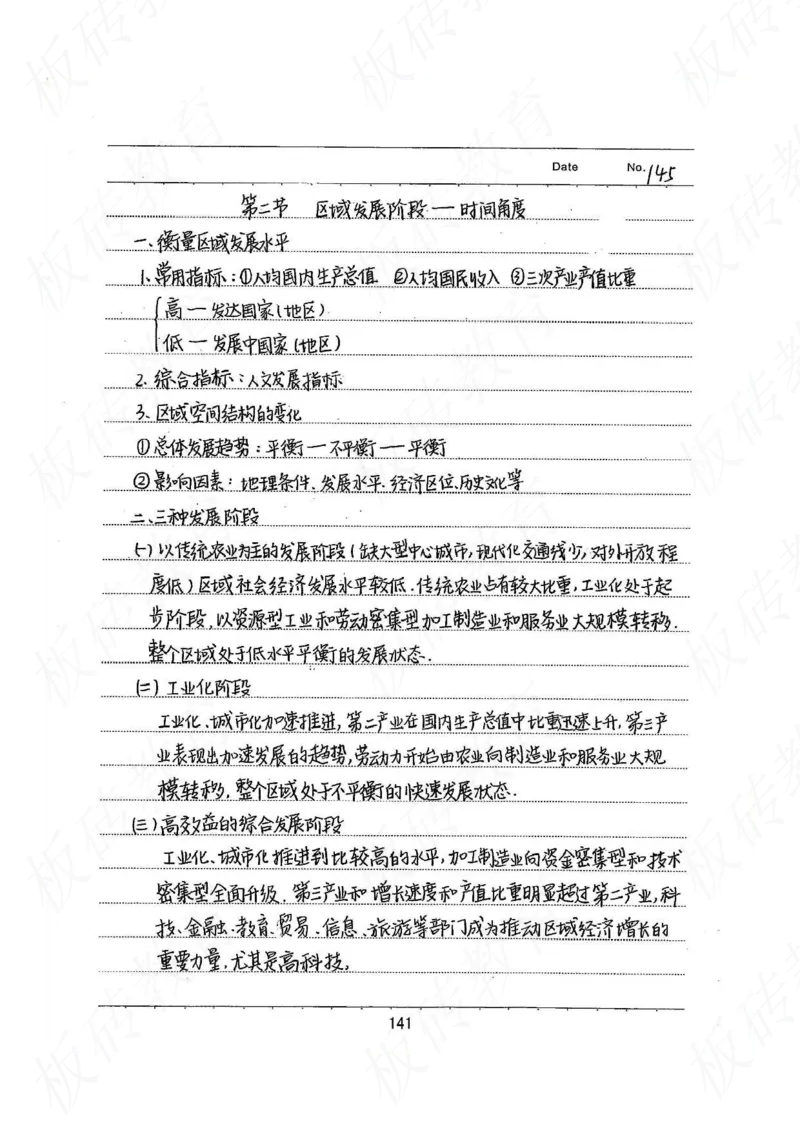 Date No. 145
第二节 区域发展阶段——时间角度
一、衡量区域发展水平
1、常用指标：①人均国内生产总值 ②人均国民收入 ③三次产业产值比重
高—发达国家(地区)
低—发展中国家(地区)
2. 综合指标：人文发展指标
3、区域空间结构的变化
①总体发展趋势：平衡—不平衡—平衡
②影响因素：地理条件、发展水平、经济区位、历史文化等
二、三种发展阶段
(一)以传统农业为主的发展阶段(缺大型中心城市，现代化交通线少，对外开放程
度低)区域社会经济发展水平较低.传统农业占有较大比重，工业化处于起
步阶段，以资源型工业和劳动密集型加工制造业和服务业大规模转移.
整个区域处于低水平平衡的发展状态.
(二)工业化阶段
工业化、城市化加速推进，第二产业在国内生产总值中比重迅速上升，第三产
业表现出加速发展的趋势，劳动力开始由农业向制造业和服务业大规
模转移，整个区域处于不平衡的快速发展状态.
(三)高效益的综合发展阶段
工业化、城市化推进到比较高的水平，加工制造业向资金密集型和技术
密集型全面升级.第三产业和增长速度和产值比重明显超过第二产业，科
技、金融、教育、贸易、信息、旅游等部门成为推动区域经济增长的
重要力量，尤其是高科技。
141
板砖教育